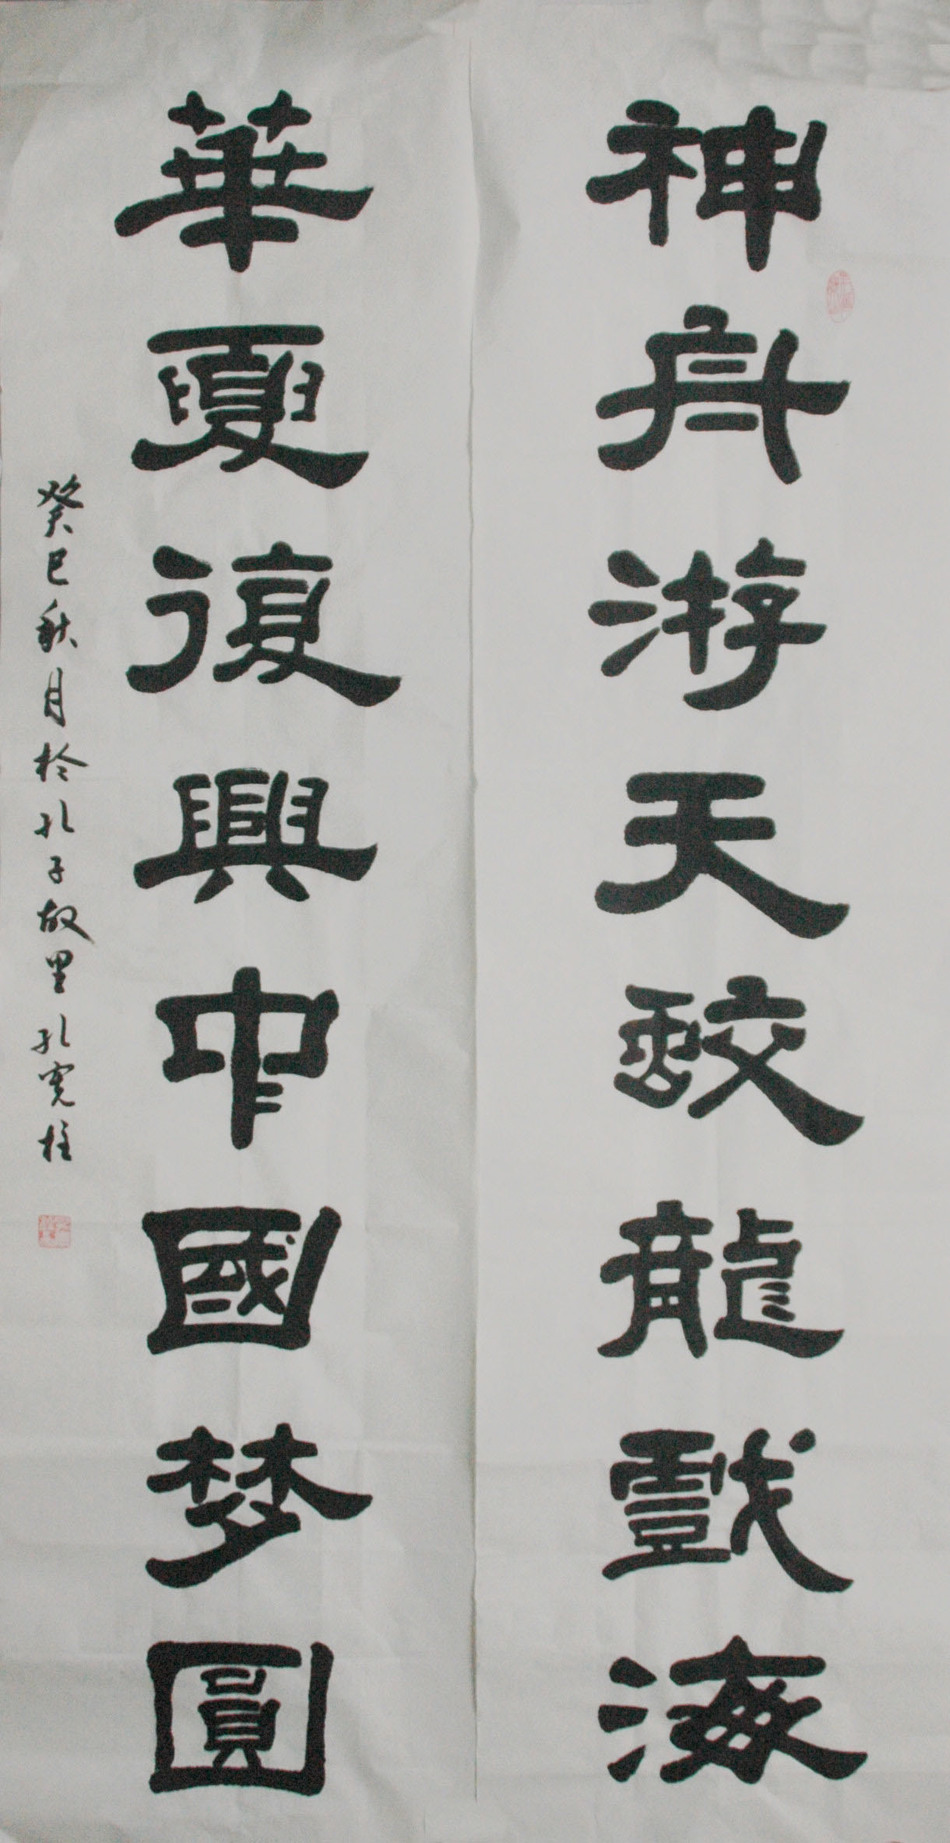 神舟游天蛟龍戲海
華夏復興中國梦圓
癸巳秋月於孔子故里孔宪柱